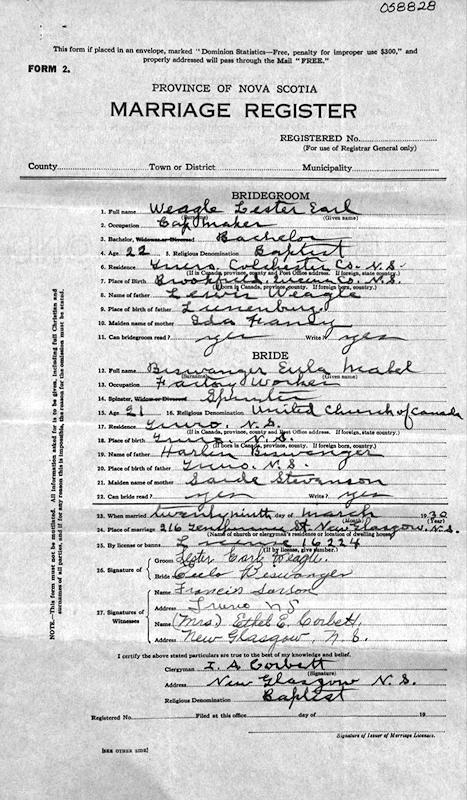 058828
This form if placed in an envelope, marked "Dominion Statistics—Free, penalty for improper use $300," and
properly addressed will pass through the Mail "FREE."
FORM 2.
PROVINCE OF NOVA SCOTIA
MARRIAGE REGISTER
REGISTERED No.
(For use of Registrar General only)
County Town or District Municipality
BRIDEGROOM
1. Full name Weagle Lester Earl
(Surname) (Given name)
2. Occupation Cap Maker
3. Bachelor, Widower or Divorced Bachelor
4. Age 22 5. Religious Denomination Baptist
6. Residence Truro, Colchester Co. N.S.
(If in Canada, province, county and Post Office address. If foreign, state country.)
7. Place of Birth Brookfield, Queens Co. N.S.
(If born in Canada, province, county. If foreign born, country.)
8. Name of father Lewis Weagle
9. Place of birth of father Lunenburg
10. Maiden name of mother Ida
11. Can bridegroom read? yes Write? yes
BRIDE
12. Full name Biswanger Eula Mabel
(Surname) (Given name)
13. Occupation Factory Worker
14. Spinster, Widow or Divorced Spinster
15. Age 21 16. Religious Denomination United Church of Canada
17. Residence Truro, N.S.
(If in Canada, province, county and Post Office address. If foreign, state country.)
18. Place of birth Truro, N.S.
(If born in Canada, province, county. If foreign born, country.)
19. Name of father Harlen Biswanger
20. Place of birth of father Truro, N.S.
21. Maiden name of mother Stevenson
22. Can bride read? yes Write? yes
23. When married twenty ninth day of March 1930
(Month) (Year)
24. Place of marriage 216 St. New Glasgow, N.S.
(Name of church or clergyman's residence or location of dwelling house)
25. By license or banns License 16224
(If by license, give number.)
26. Signature of
Groom Lester Earl Weagle
Bride Eula Biswanger
27. Signatures of Witnesses
Name Francis
Address Truro N S
Name (Mrs) Ethel E. Corbett,
Address New Glasgow, N.S.
I certify the above stated particulars are true to the best of my knowledge and belief.
Clergyman I. A Corbett
(Signature)
Address New Glasgow N.S.
Religious Denomination Baptist
Registered No. Filed at this office day of 19
Signature of Issuer of Marriage Licenses.
[SEE OTHER SIDE]
NOTE.—This form must not be mutilated. All information asked for is to be given, including full Christian and
surnames of all parties, and if for any reason this is impossible, the reason for the omission must be stated.